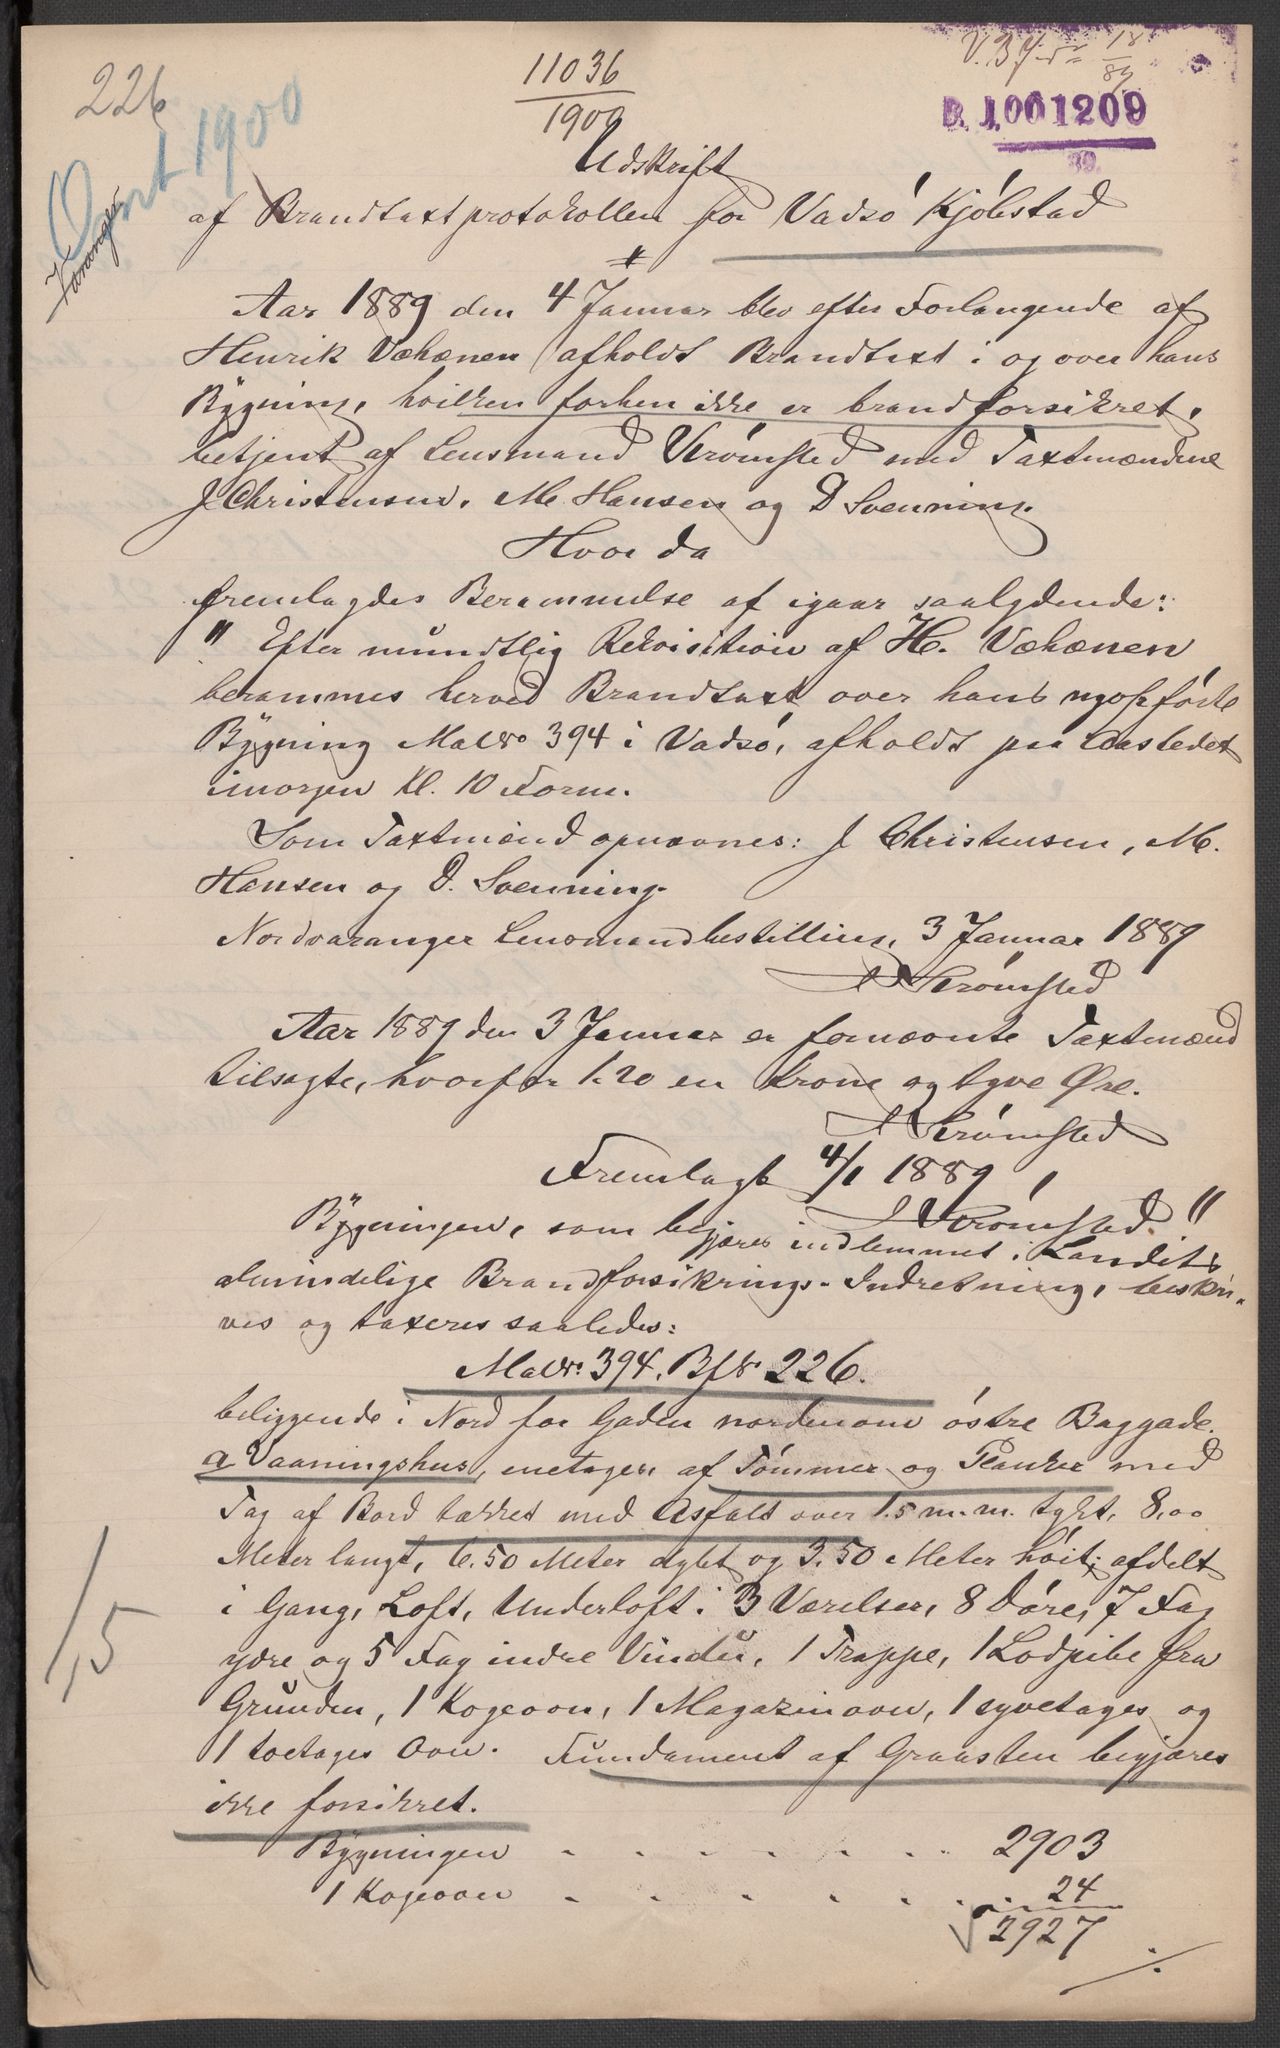 226
11036
1900
18
89
B. J. 001209
89.
Omt 1900
Varanger
Udskrift
af Brandtaxtprotokollen for Vadsö Kjöbstad
Aar 1889 den 4 Januar blev efter Forlangende af
Henrik Væhænen afholdt Brandtaxt i og over hans
Bygning, hvilken forhen ikke er brandforsikret,
betjent af Lensmand Strömsted med Taxtmændene
J Christensen, M. Hansen og D Svenning.
Hvor da
fremlagdes Berammelse af igaar saalydende:
" Efter mundtlig Rekvisition af H. Væhænen
berammes herved Brandtaxt over hans nyopförte
Bygning Mat No 394 i Vadsö, afholdt paa Aastedet
imorgen Kl. 10 Form.
Som Taxtmænd opnævnes: J Christensen, M.
Hansen og D. Svenning.
Nordvaranger Lensmandbestilling, 3 Januar 1889
A Strömsted
Aar 1889 den 3 Januar er fornævnte Taxtmænd
tilsagte, hvorfor 1.20 en Krone og tyve Øre.
A Strömsted
Fremlagt 4/1 1889
A Strömsted. "
Bygningen, som begjæres indlemmet i Landets
almindelige Brandforsikrings-Indretning, beskri-
ves og taxeres saaledes:
Mat No. 394. Bf No 226.
beliggende i Nord for Gaden nordenom östre Baggade.
a Vaaningshus, enetages af Tömmer og Planker med
Tag af Bord tækket med Asfalt over 1.5 m.m. tykt, 8,00
Meter langt, 6.50 Meter dybt og 3.50 Meter höit; afdelt
i Gang, Loft, Underloft i 3 Værelser, 8 Döre, 7 Fag
ydre og 5 Fag indre Vindu, 1 Trappe, 1 Lodpibe fra
Grunden, 1 Kogeovn, 1 Magazinovn, 1 syvetages og
1 toetages Ovn. Fundament af Graasten begjæres
ikke forsikret.
Bygningen . . . . . . 2903
1 Kogeovn . . . . . . 24
2927
./.
1,5